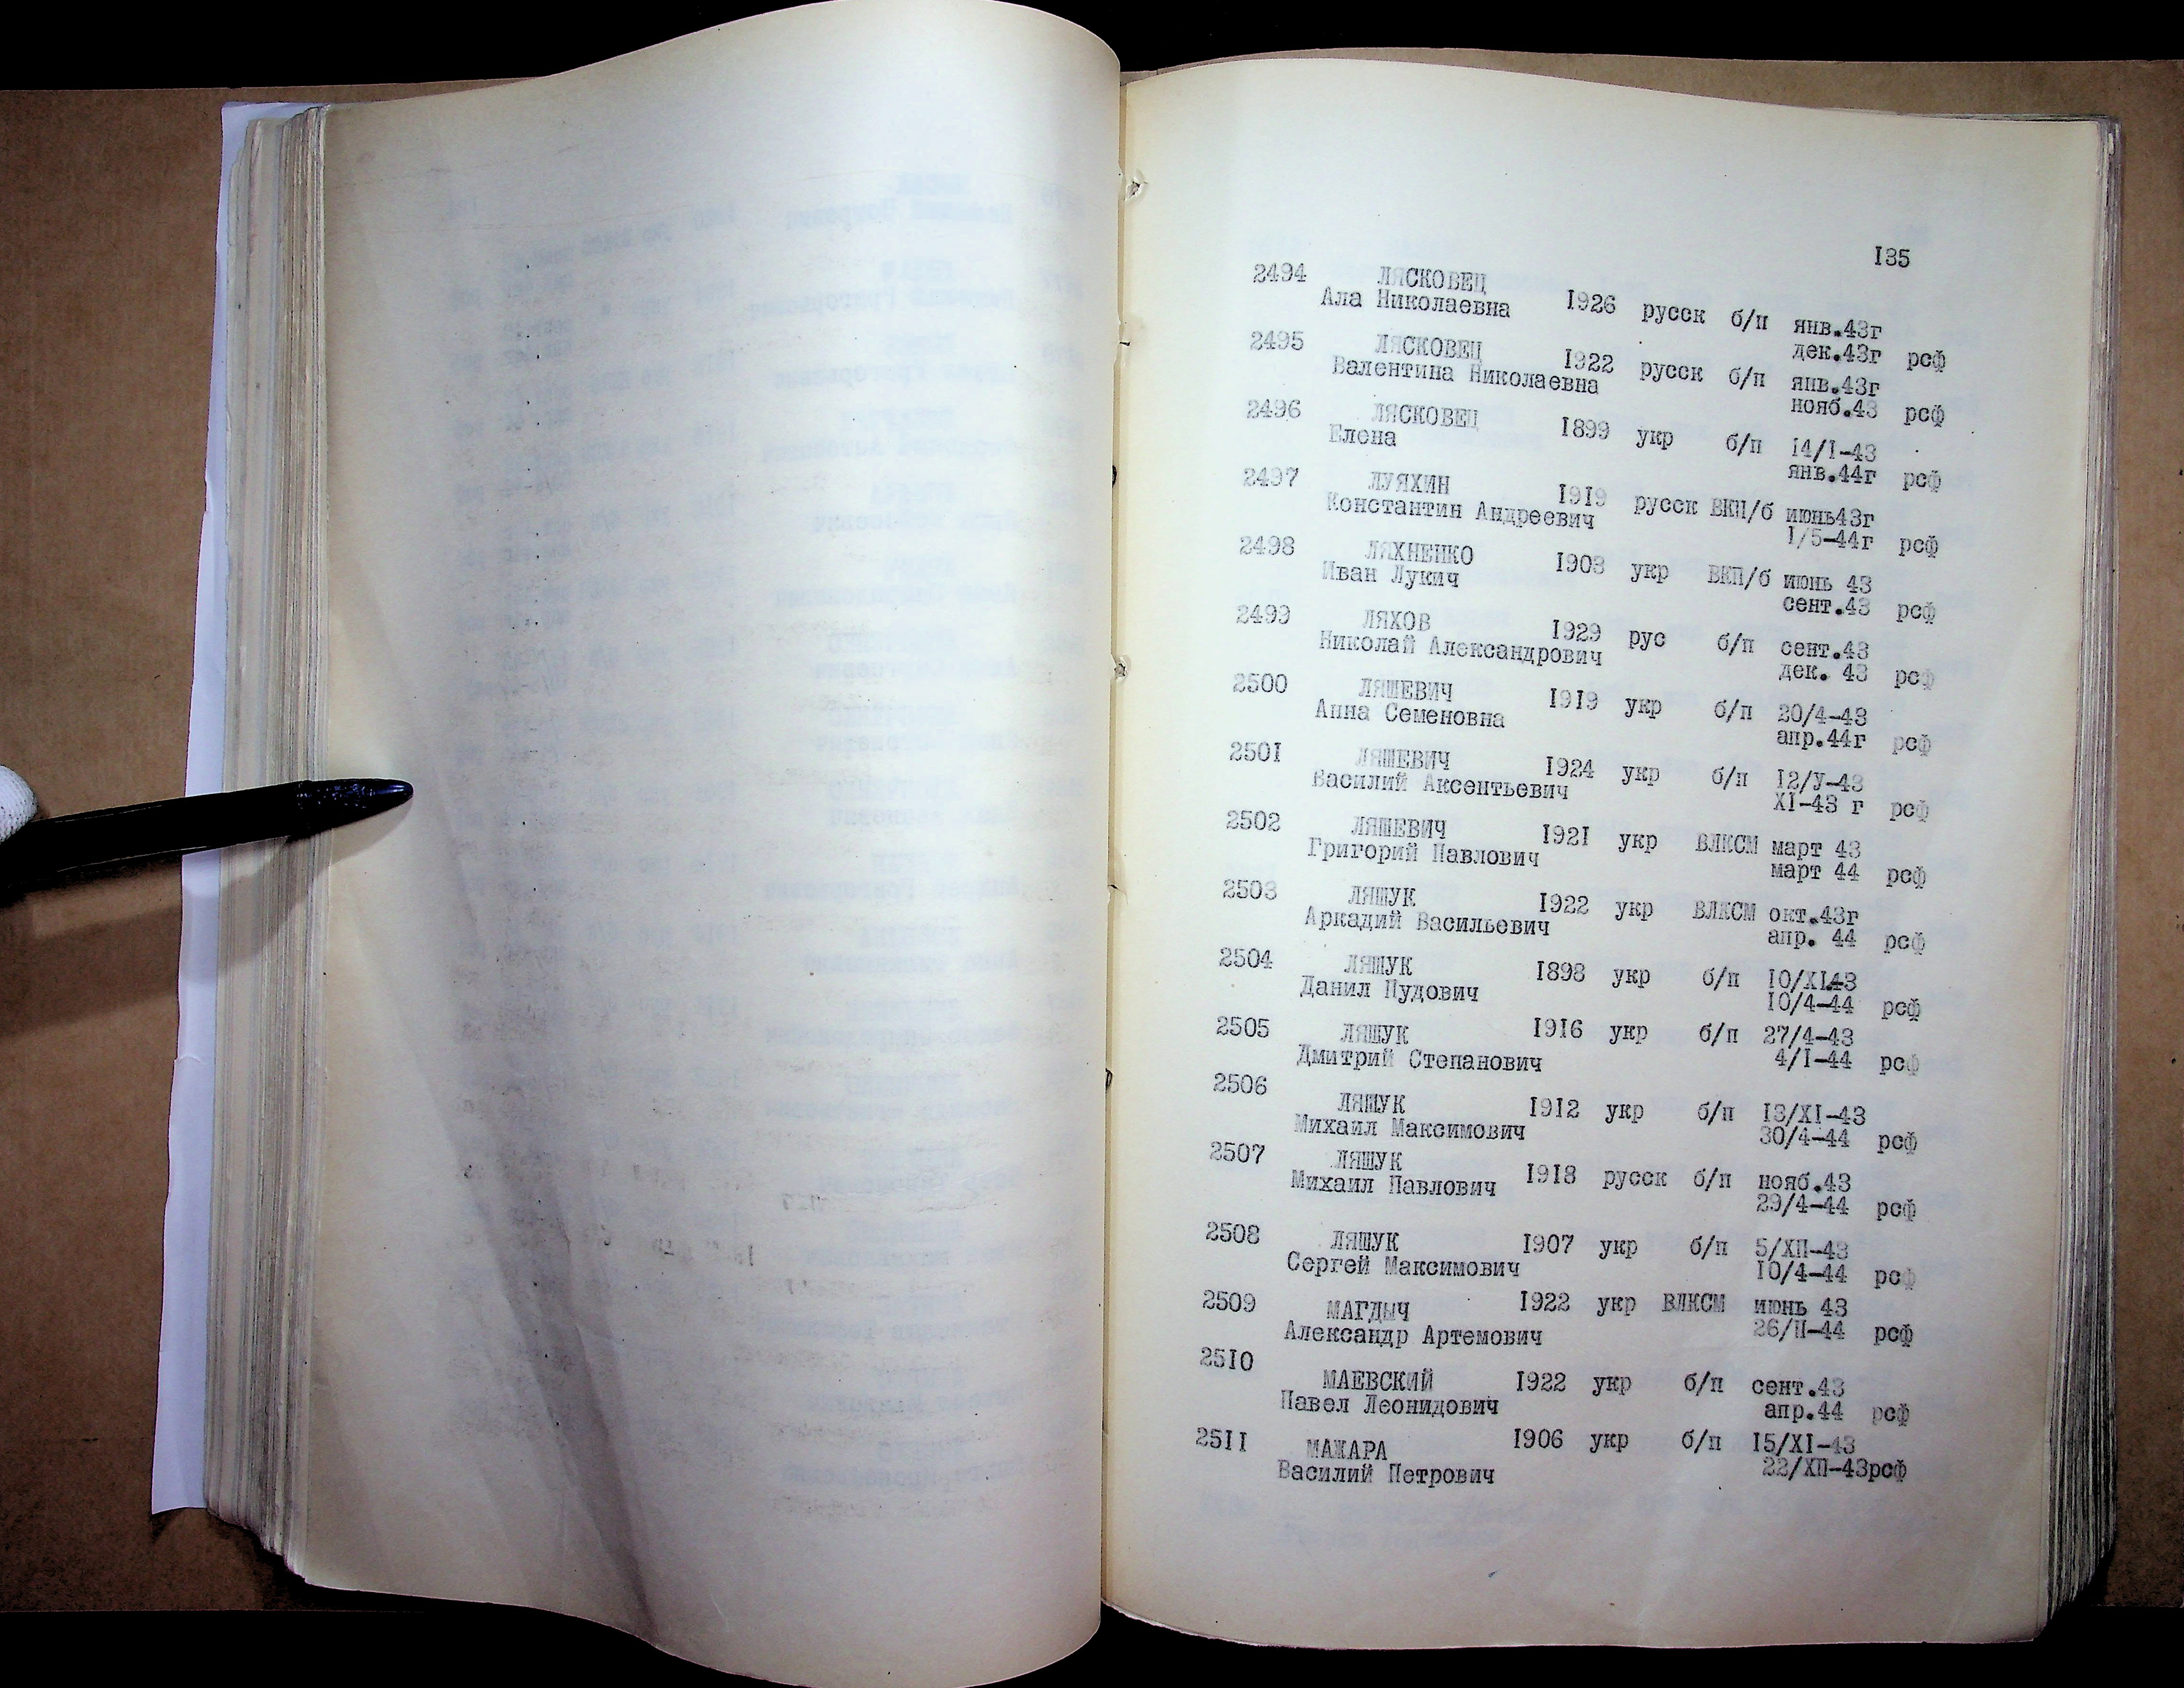 135
2494 ЛЯСКОВЕЦ
Ала Николаевна 1926 русск б/п янв.43г
дек.43г рсф
2495 ЛЯСКОВЕЦ
Валентина Николаевна 1922 русск б/п янв.43г
нояб.43 рсф
2496 ЛЯСКОВЕЦ
Елена 1899 укр б/п 14/I-43
янв.44г рсф
2497 ЛУЯХИН
Константин Андреевич 1919 русск ВКП/б июнь43г
1/5-44г рсф
2498 ЛЯХНЕНКО
Иван Лукич 1903 укр ВКП/б июнь 43
сент.43 рсф
2499 ЛЯХОВ
Николай Александрович 1929 рус б/п сент.43
дек. 43 рсф
2500 ЛЯШЕВИЧ
Анна Семеновна 1919 укр б/п 20/4-43
апр.44г рсф
2501 ЛЯШЕВИЧ 1924 укр б/п 12/У-43
Василий Аксентьевич XI-43 г рсф
2502 ЛЯШЕВИЧ 1921 укр ВЛКСМ март 43
Григорий Павлович март 44 рсф
2503 ЛЯШУК 1922 укр ВЛКСМ окт.43г
Аркадий Васильевич апр. 44 рсф
2504 ЛЯШУК 1898 укр б/п 10/XI43
Данил Пудович 10/4-44 рсф
2505 ЛЯШУК 1916 укр б/п 27/4-43
Дмитрий Степанович 4/I-44 рсф
2506 ЛЯШУК 1912 укр б/п 13/XI-43
Михаил Максимович 30/4-44 рсф
2507 ЛЯШУК
Михаил Павлович 1918 русск б/п нояб.43
29/4-44 рсф
2508 ЛЯШУК 1907 укр б/п 5/ХП-43
Сергей Максимович 10/4-44 рсф
2509 МАГДЫЧ 1922 укр ВЛКСМ июнь 43
Александр Артемович 26/П-44 рсф
2510 МАЕВСКИЙ 1922 укр б/п сент.43
Павел Леонидович апр.44 рсф
2511 МАЖАРА 1906 укр б/п 15/XI-43
Василий Петрович 22/ХП-43рсф